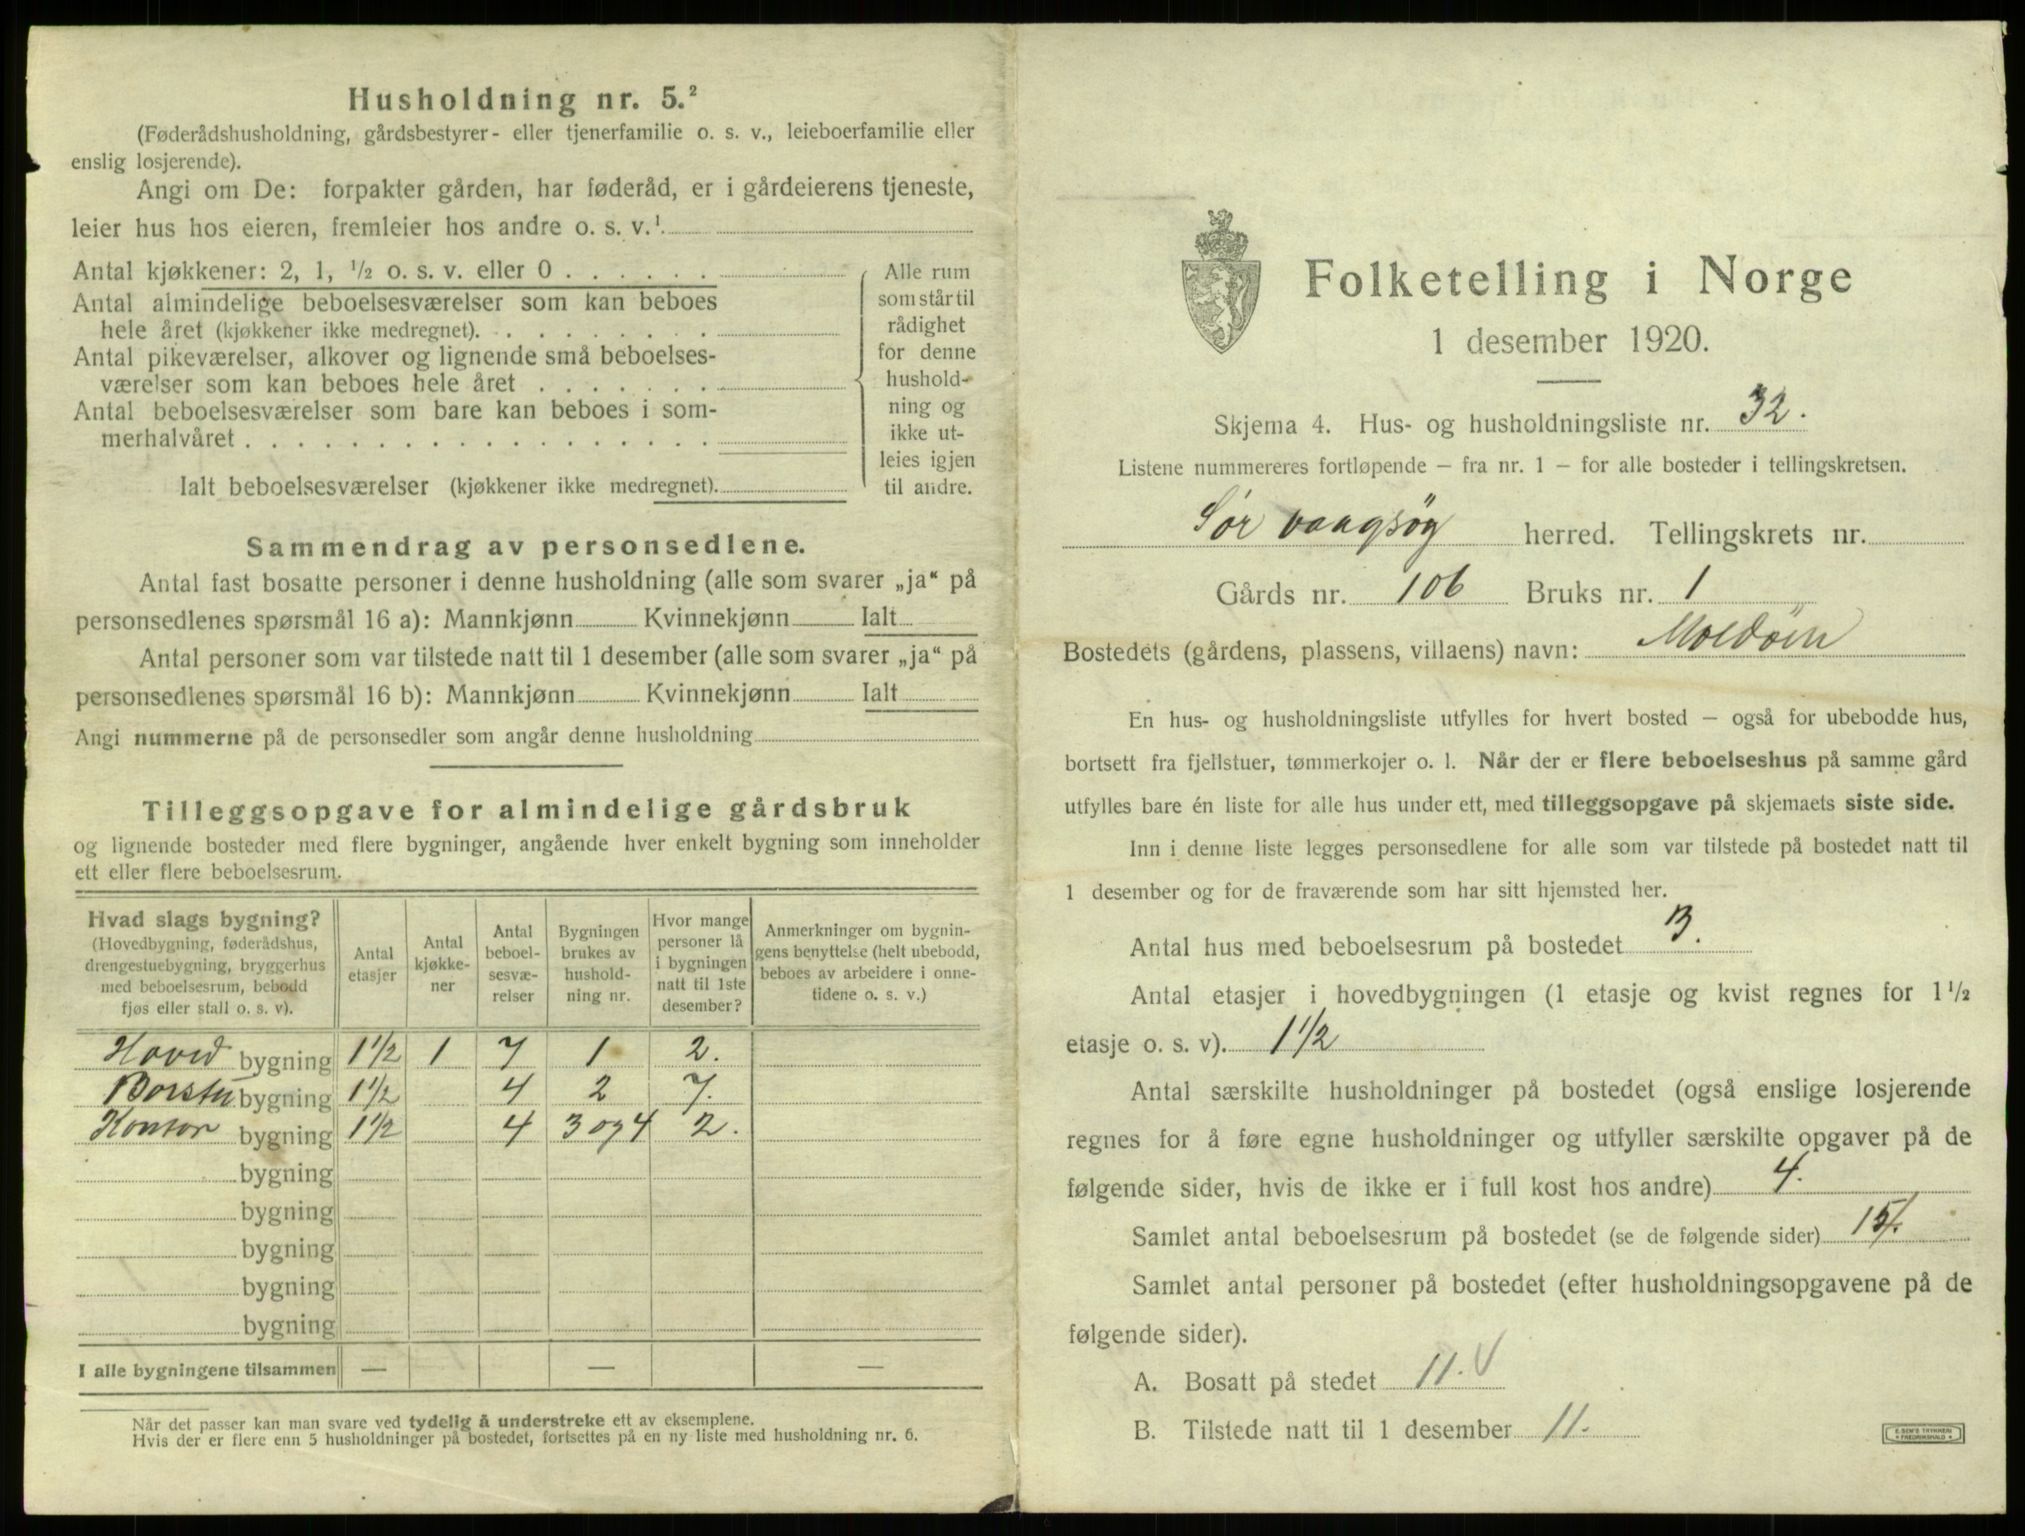 Husholdning nr. 5.²
(Føderådshusholdning, gårdsbestyrer- eller tjenerfamilie o. s. v., leieboerfamilie eller
enslig losjerende).
Angi om De: forpakter gården, har føderåd, er i gårdeierens tjeneste,
leier hus hos eieren, fremleier hos andre o. s. v.¹
Antal kjøkkener: 2, 1, ½ o. s. v. eller 0 . . . . . .
Antal almindelige beboelsesværelser som kan beboes
hele året (kjøkkener ikke medregnet). . . . . . . . .
Antal pikeværelser, alkover og lignende små beboelses-
værelser som kan beboes hele året . . . . . . .
Antal beboelsesværelser som bare kan beboes i som-
merhalvåret . . . . . . . . . . . . . . . . . .
Ialt beboelsesværelser (kjøkkener ikke medregnet).
Alle rum
som står til
rådighet
for denne
hushold-
ning og
ikke ut-
leies igjen
til andre.
Sammendrag av personsedlene.
Antal fast bosatte personer i denne husholdning (alle som svarer „ja“ på
personsedlenes spørsmål 16 a): Mannkjønn Kvinnekjønn Ialt
Antal personer som var tilstede natt til 1 desember (alle som svarer „ja“ på
personsedlenes spørsmål 16 b): Mannkjønn Kvinnekjønn Ialt
Angi nummerne på de personsedler som angår denne husholdning
Tilleggsopgave for almindelige gårdsbruk
og lignende bosteder med flere bygninger, angående hver enkelt bygning som inneholder
ett eller flere beboelsesrum.
Hvad slags bygning?
(Hovedbygning, føderådshus,
drengestuebygning, bryggerhus
med beboelsesrum, bebodd
fjøs eller stall o. s. v).
Antal
etasjer
Antal
kjøkke-
ner
Antal
beboel-
sesvæ-
relser
Bygningen
brukes av
hushold-
ning nr.
Hvor mange
personer lå
i bygningen
natt til 1ste
desember?
Anmerkninger om bygnin-
gens benyttelse (helt ubebodd,
beboes av arbeidere i onne-
tidene o. s. v.)
Hoved bygning 1½ 1 7 1 2.
Borstu bygning 1½ 4 2 7.
Kontor bygning 1½ 4 3 og 4 2.
bygning
bygning
bygning
bygning
bygning
I alle bygningene tilsammen — — —
Når det passer kan man svare ved tydelig å understreke ett av eksemplene.
Hvis der er flere enn 5 husholdninger på bostedet, fortsettes på en ny liste med husholdning nr. 6.
Folketelling i Norge
1 desember 1920.
Skjema 4. Hus- og husholdningsliste nr. 32.
Listene nummereres fortløpende — fra nr. 1 — for alle bosteder i tellingskretsen.
Sør vaagsøy herred. Tellingskrets nr.
Gårds nr. 106 Bruks nr. 1
Bostedets (gårdens, plassens, villaens) navn: Moldöen
En hus- og husholdningsliste utfylles for hvert bosted — også for ubebodde hus,
bortsett fra fjellstuer, tømmerkojer o. l. Når der er flere beboelseshus på samme gård
utfylles bare én liste for alle hus under ett, med tilleggsopgave på skjemaets siste side.
Inn i denne liste legges personsedlene for alle som var tilstede på bostedet natt til
1 desember og for de fraværende som har sitt hjemsted her.
Antal hus med beboelsesrum på bostedet 3.
Antal etasjer i hovedbygningen (1 etasje og kvist regnes for 1½
etasje o. s. v). 1½
Antal særskilte husholdninger på bostedet (også enslige losjerende
regnes for å føre egne husholdninger og utfyller særskilte opgaver på de
følgende sider, hvis de ikke er i full kost hos andre) 4.
Samlet antal beboelsesrum på bostedet (se de følgende sider) 15.
Samlet antal personer på bostedet (efter husholdningsopgavene på de
følgende sider).
A. Bosatt på stedet 11. V
B. Tilstede natt til 1 desember 11.
E. SEM'S TRYKKERI
• FREDRIKSHALD •